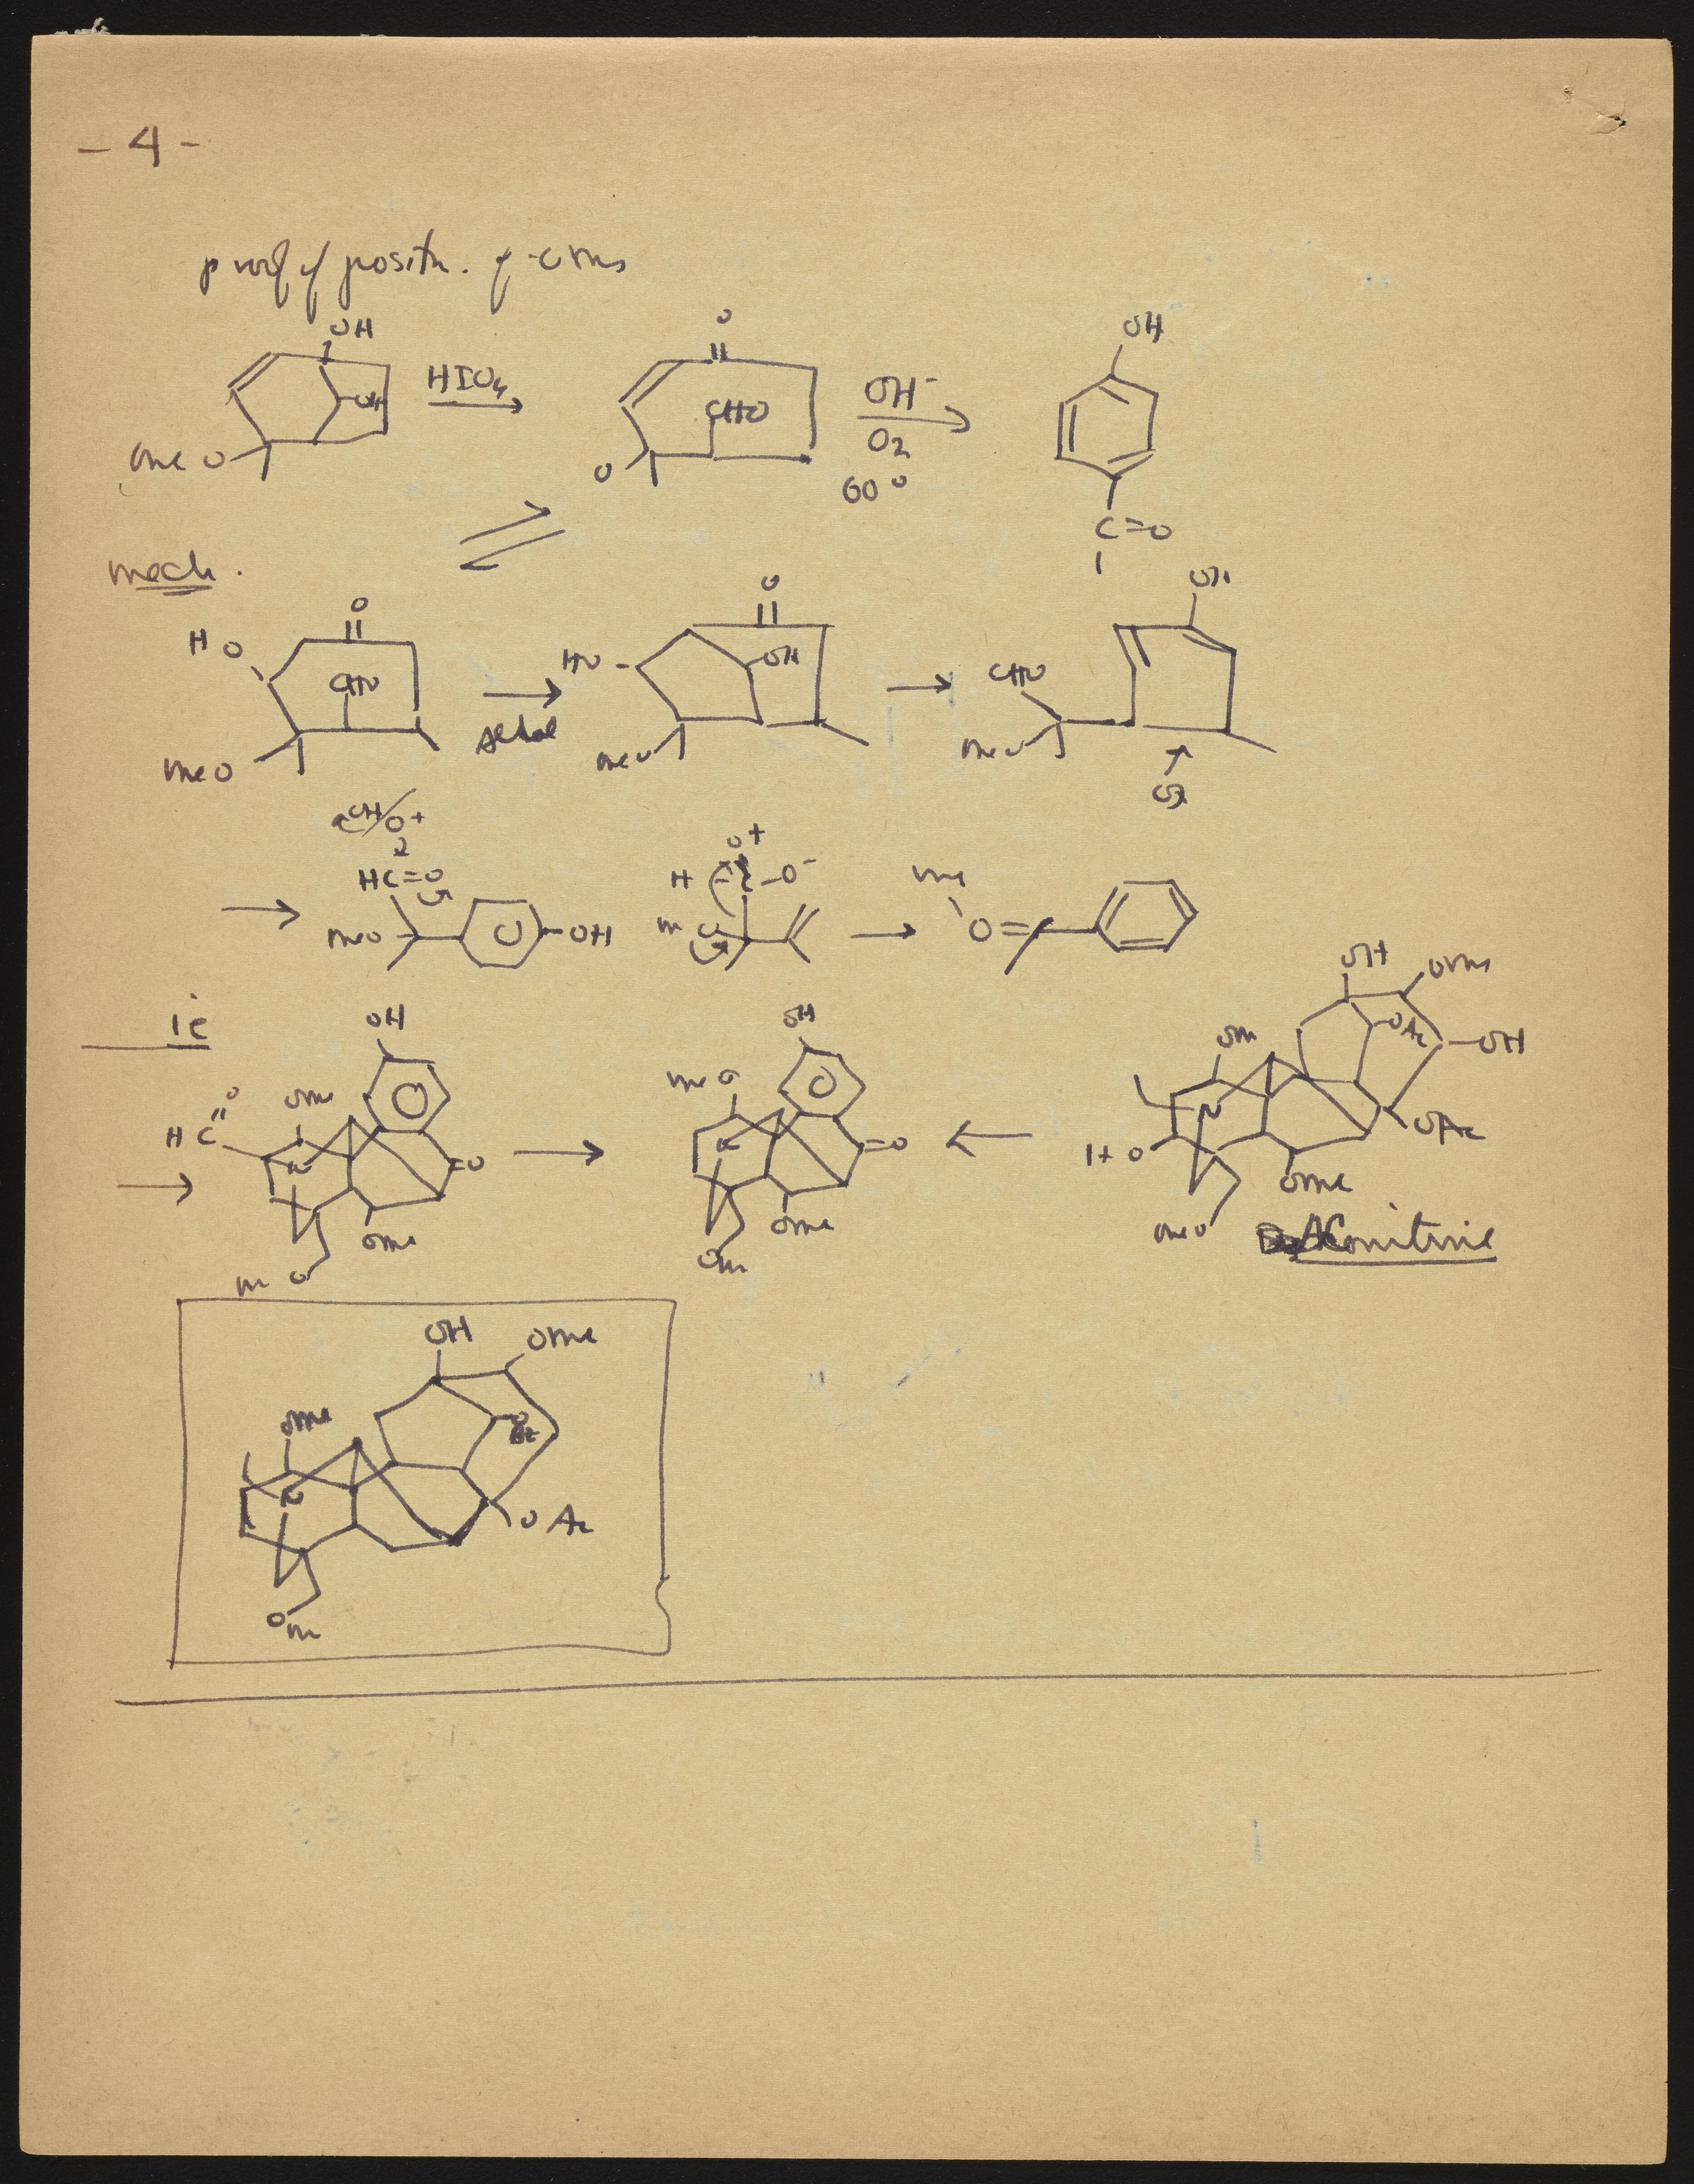 - 4 -
proof of positn. of -OMe
OH
OH
OMe
HIO4
O
CHO
O
OH-
O2
60°
OH
C=O
mech.
HO
O
CHO
MeO
aldol
O
HO
OH
MeO
OH
CHO
MeO
Ox
OH/O+
HC=O
MeO
OH
O+
H
-O-
Me
O=
ie
OH
OMe
O
HC
N
=O
OMe
MeO
OH
MeO
N
=O
OMe
OMe
OH
OMe
OAc
OH
OMe
N
OAc
HO
OMe
MeO
Aconitine
OH
OMe
OMe
OBz
N
OAc
OMe